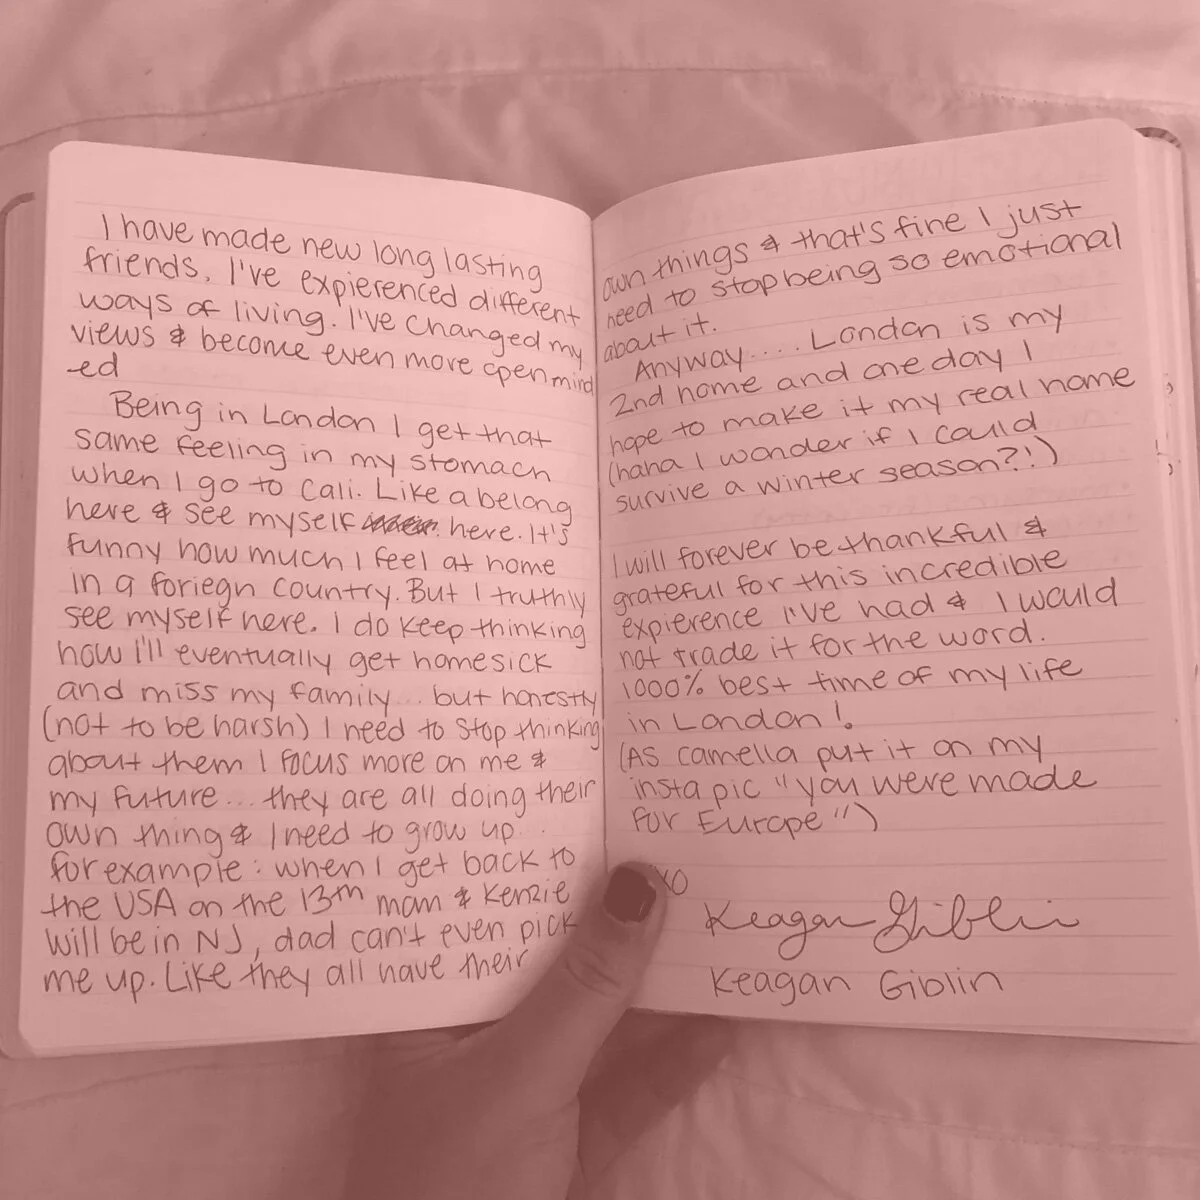 I have made new long lasting
friends. I've expierenced different
ways of living. I've changed my
views & become even more open mind
-ed
Being in London I get that
same feeling in my stomach
when I go to Cali. Like a belong
here & see myself here. It's
funny how much I feel at home
in a foriegn country. But I truthly
see myself here. I do keep thinking
how I'll eventually get homesick
and miss my family... but honestly
(not to be harsh) I need to stop thinking
about them I focus more on me &
my future... they are all doing their
own thing & I need to grow up...
for example: when I get back to
the USA on the 13th mom & Kenzie
will be in NJ, dad can't even pick
me up. Like they all have their
own things & that's fine I just
need to stop being so emotional
about it.
Anyway.... London is my
2nd home and one day I
hope to make it my real home
(haha I wonder if I could
survive a winter season?!)
I will forever be thankful &
grateful for this incredible
expierence I've had & I would
not trade it for the word.
1000% best time of my life
in London!
(As camella put it on my
insta pic "you were made
for Europe")
XO
Keagan Giblin
Keagan Giblin